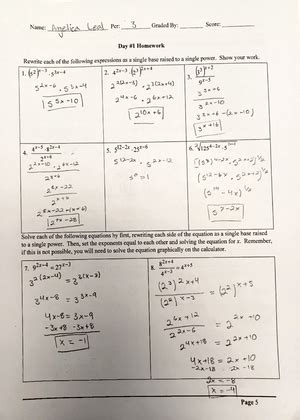 Name: Angelica Leal Per: 3 Graded By: Score:
Day #1 Homework
Rewrite each of the following expressions as a single base raised to a power. Show your work.
1. (5²)ˣ⁻³ · 5³ˣ⁻⁴
5²ˣ⁻⁶ · 5³ˣ⁻⁴
5⁵ˣ⁻¹⁰
2. 4²ˣ⁻³ · (2³)²ˣ⁺⁴
2²⁽²ˣ⁻³⁾ · 2³⁽²ˣ⁺⁴⁾
2⁴ˣ⁻⁶ · 2⁶ˣ⁺¹²
2¹⁰ˣ⁺⁶
3.
3³ˣ⁺⁶
3²ˣ⁻¹⁰
3³ˣ⁺⁶⁻⁽²ˣ⁻¹⁰⁾
3ˣ⁺¹⁶
4.
2⁸ˣ⁻²²
2ˣ⁺⁶
2⁸ˣ⁻²²⁻⁽ˣ⁺⁶⁾
2⁷ˣ⁻²⁸
5. 5¹²⁻²ˣ · 25ˣ⁻⁶
5¹²⁻²ˣ · 5²ˣ⁻¹²
5⁰ = 1
6.
5⁷⁻²ˣ
Solve each of the following equations by first, rewriting each side of the equation as a single base raised
to a power. Then, set the exponents equal to each other and solving the equation for x. Remember, if
this is not possible, you will need to solve the equation graphically on the calculator.
7. 9²ˣ⁻⁴ = 27ˣ⁻³
3²⁽²ˣ⁻⁴⁾ = 3³⁽ˣ⁻³⁾
3⁴ˣ⁻⁸ = 3³ˣ⁻⁹
4x-8 = 3x-9
-3x+8 -3x+8
x = -1
8. 8²ˣ⁺⁴ / 4ˣ⁻³ = 4ˣ⁺⁵
(2³)²ˣ⁺⁴ / (2²)ˣ⁻³ = (2²)ˣ⁺⁵
2⁶ˣ⁺¹² / 2²ˣ⁻⁶ = 2²ˣ⁺¹⁰
2⁴ˣ⁺¹⁸ = 2²ˣ⁺¹⁰
4x+18 = 2x+10
-2x-18 -2x-18
2x = -8
x = -4
Page 5